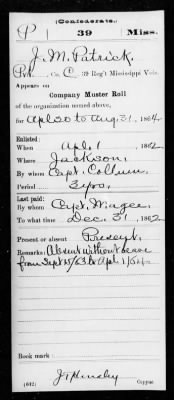 (Confederate.)
P 39 Miss.
J. M. Patrick.
Pvt., Co. C, 39 Reg't Mississippi Vols.
Appears on
Company Muster Roll
of the organization named above,
for Apl 30 to Aug. 31, 1864.
Enlisted:
When Apl. 1, 1862
Where Jackson.
By whom Capt. Collum.
Period 3 yrs.
Last paid:
By whom Capt. Magee.
To what time Dec. 31, 1862
Present or absent Present.
Remarks: Absent without leave
from Sept 15/63 to Apl 1/64.
Book mark:
(642) Copyist.